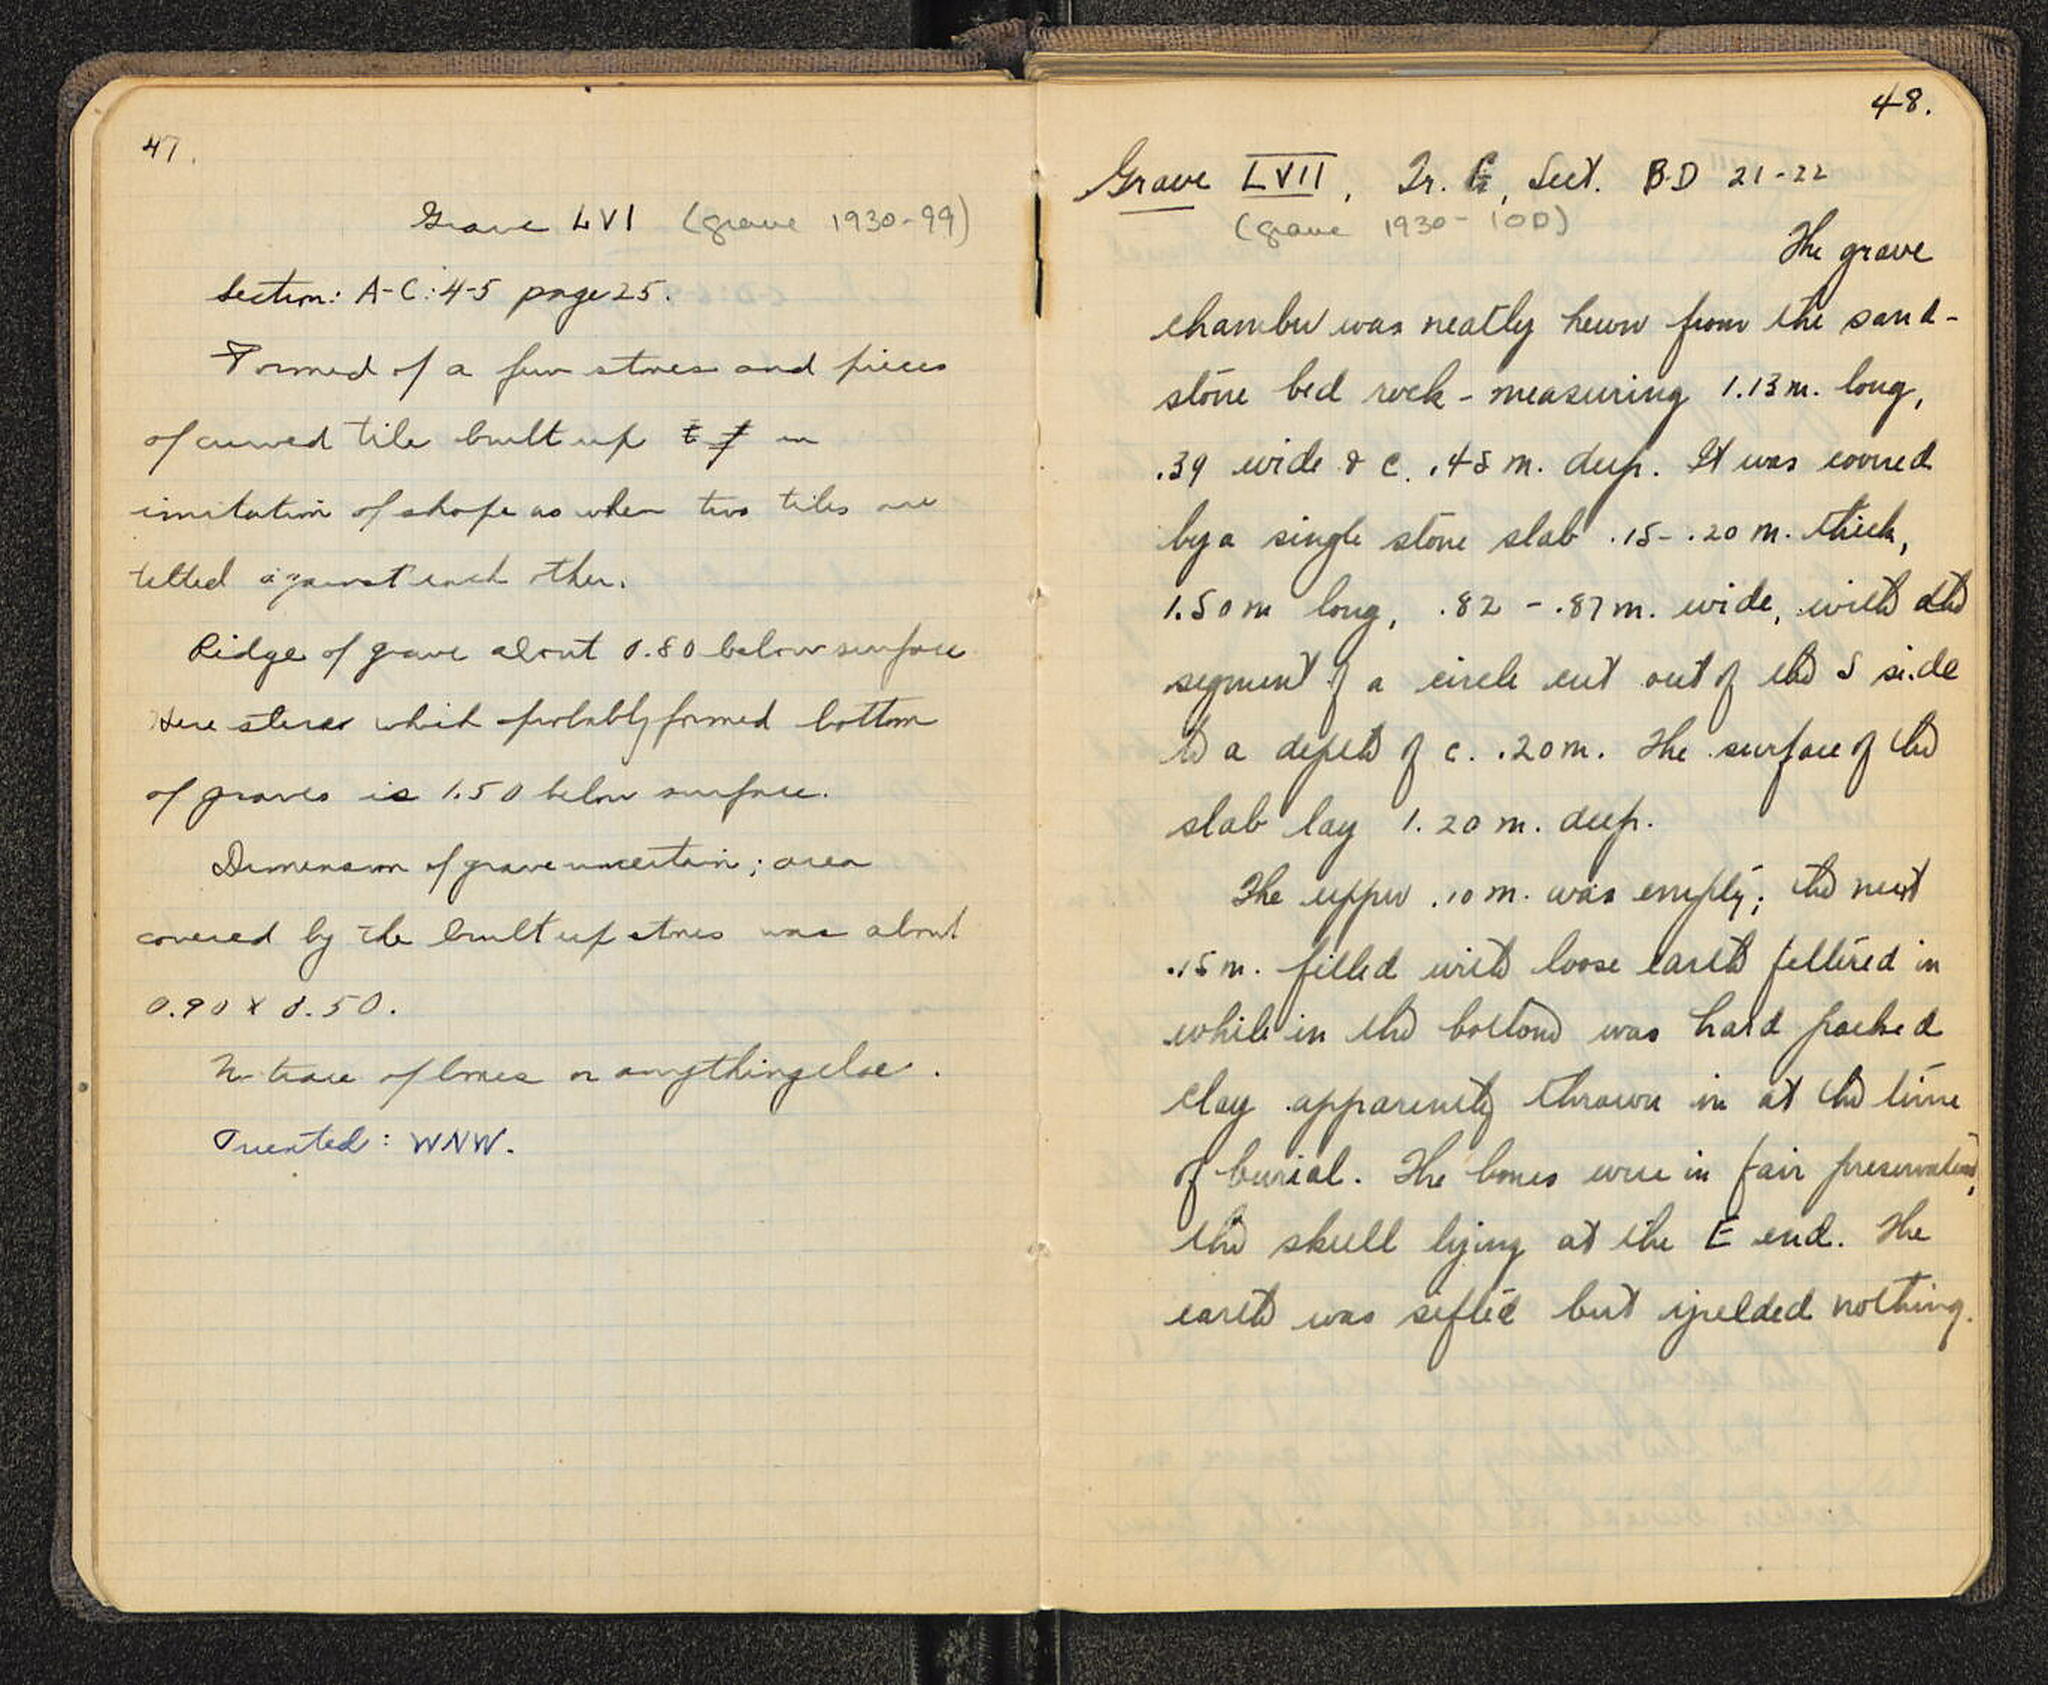 47.
Grave LVI (grave 1930-99)
Section: A-C:4-5 page 25.
Formed of a few stones and pieces
of curved tile built up in
imitation of shape as when two tiles are
tilted against each other.
Ridge of grave about 0.80 below surface
Here stones which probably formed bottom
of graves is 1.50 below surface.
Dimension of grave uncertain; area
covered by the built up stones was about
0.90 x 0.50.
No trace of bones or anything else.
Oriented: WNW.
48.
Grave LVII, Tr. G, Sect. B-D 21-22
(grave 1930-100)
The grave
chamber was neatly hewn from the sand-
stone bed rock - measuring 1.13 m. long,
.39 wide & c. .45 m. deep. It was covered
by a single stone slab .15-.20 m. thick,
1.50 m long, .82 - .87 m. wide, with the
segment of a circle cut out of the S side
to a depth of c. .20 m. The surface of the
slab lay 1.20 m. deep.
The upper .10 m. was empty; the next
.15 m. filled with loose earth filtered in
while in the bottom was hard packed
clay apparently thrown in at the time
of burial. The bones were in fair preservation,
the skull lying at the E end. The
earth was sifted but yielded nothing.